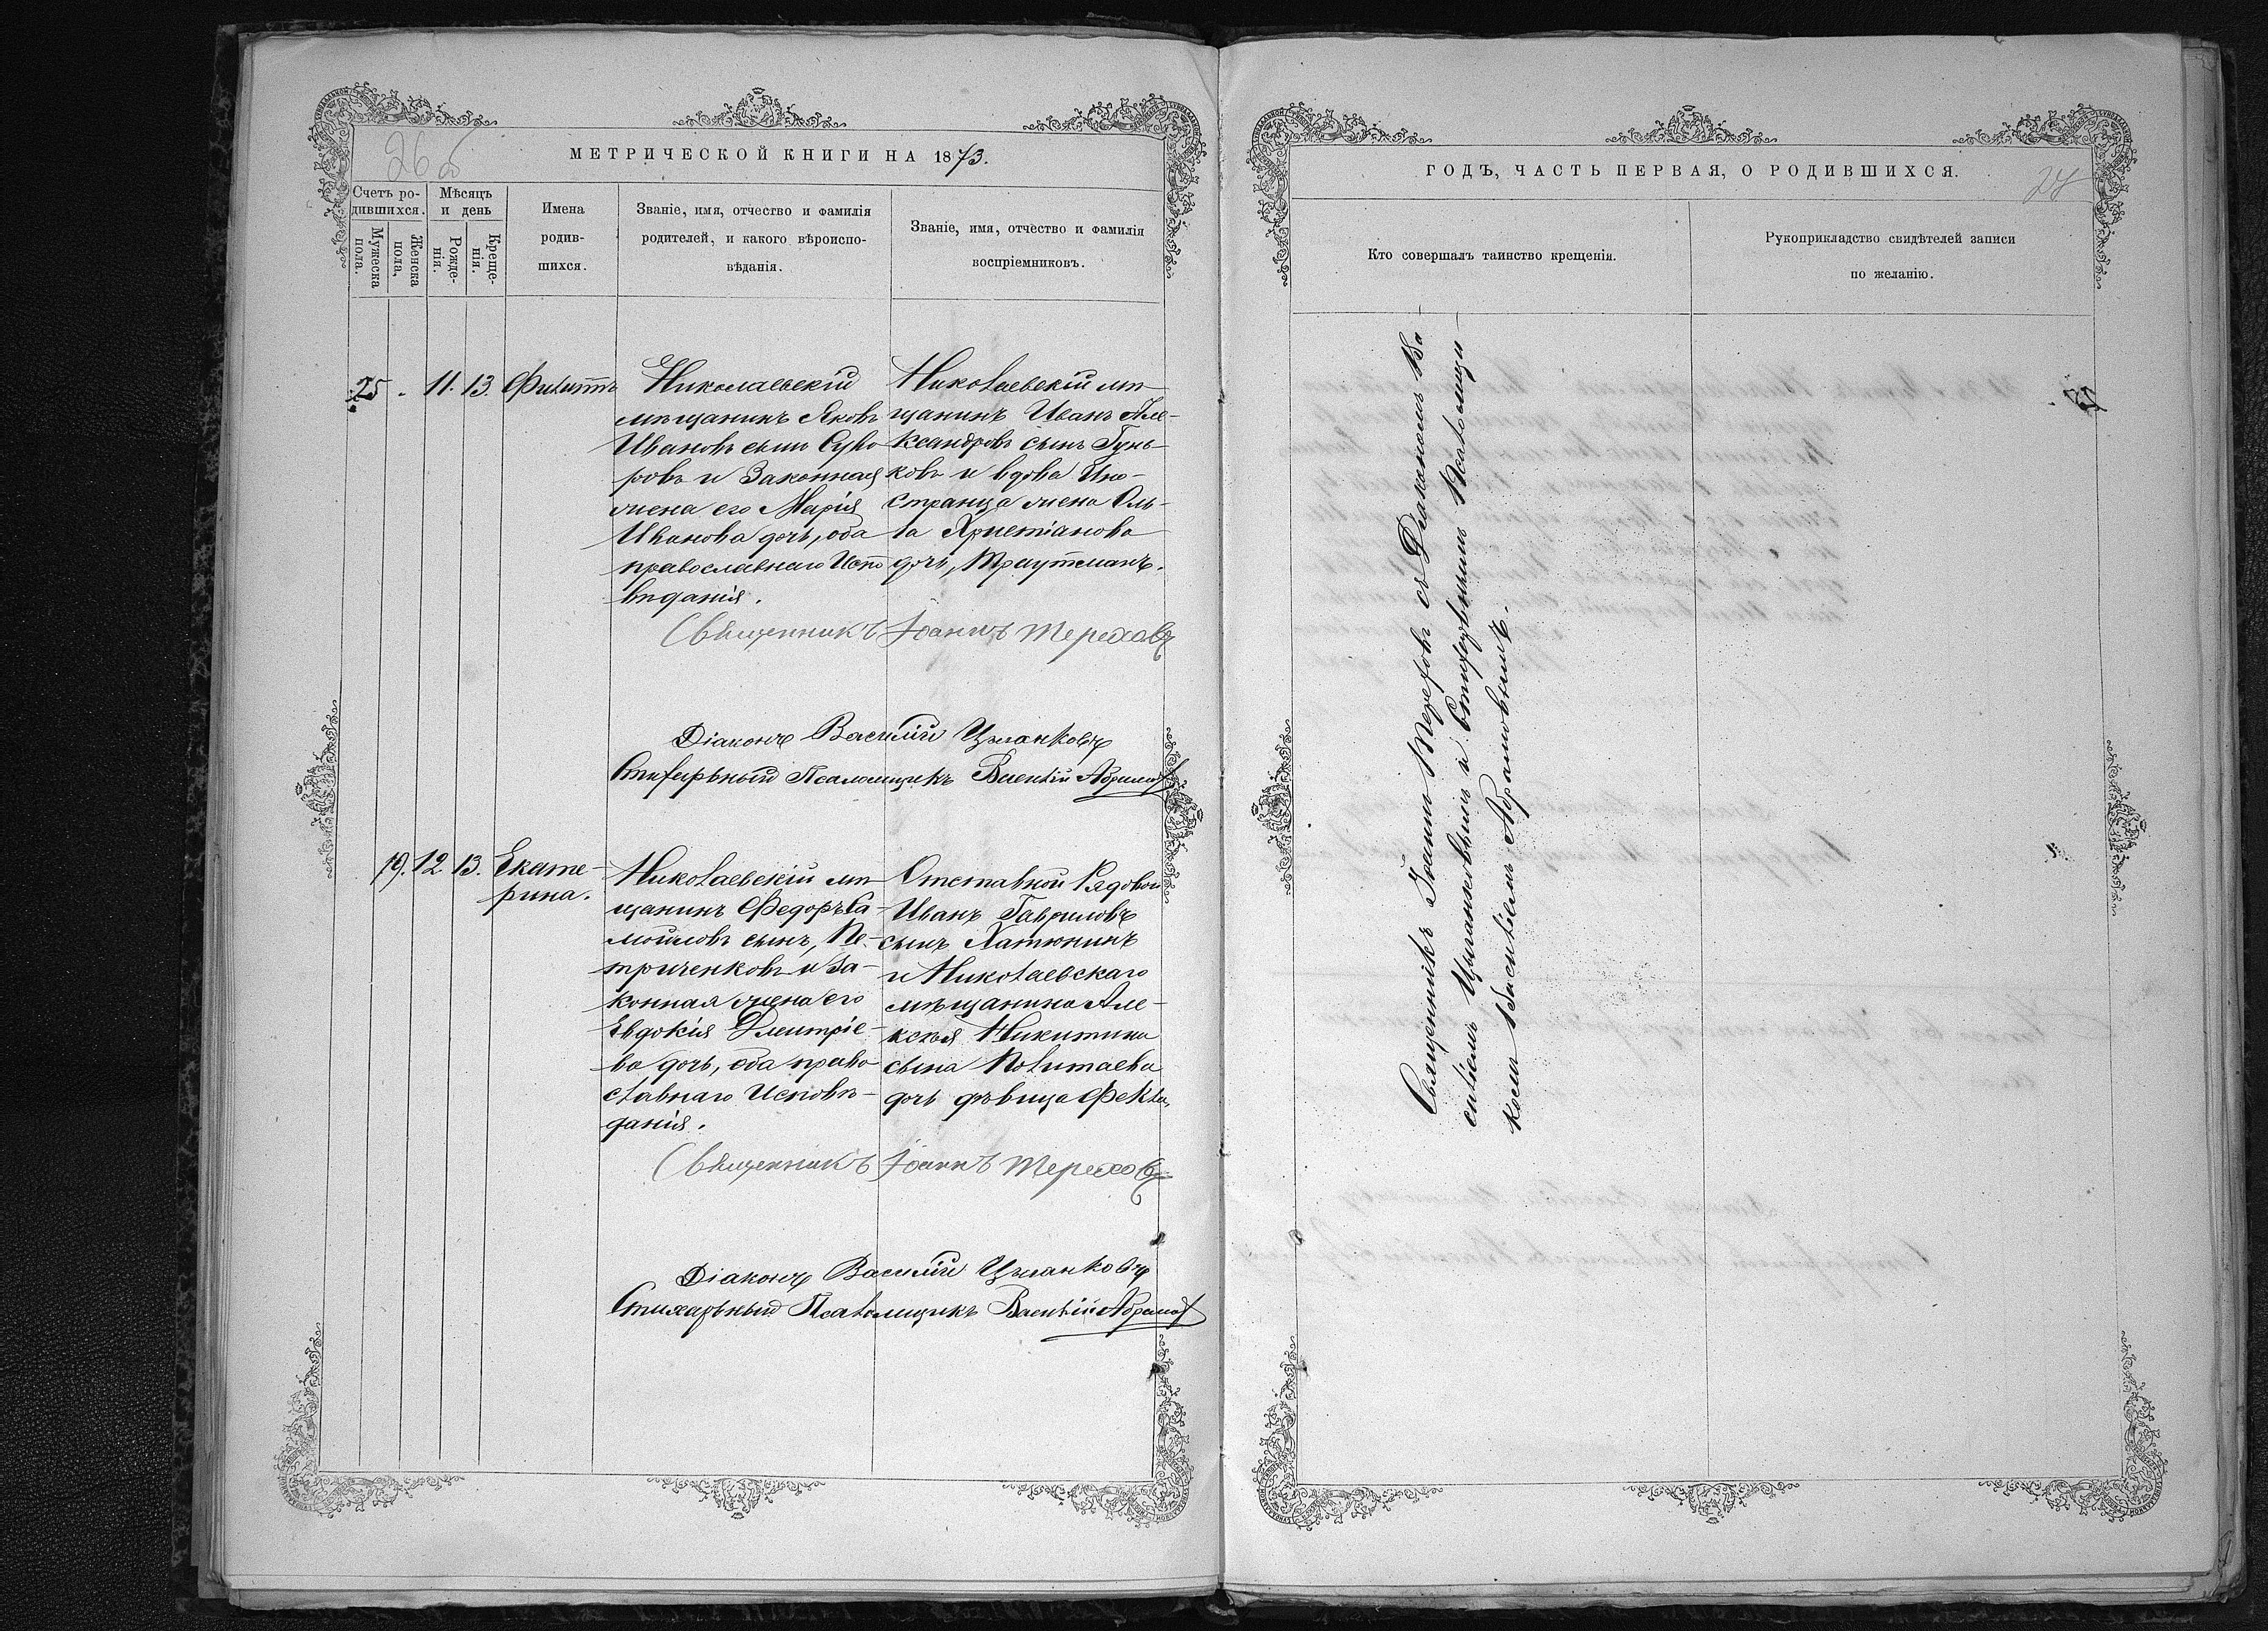 26 об
МЕТРИЧЕСКОЙ КНИГИ НА 1873.
Счетъ ро-
дившихся.
Мужеска
пола.
Женска
пола,
Мѣсяцъ
и день
Рожде-
нія.
Креще-
нія.
Имена
родив-
шихся.
Званіе, имя, отчество и фамилія
родителей, и какого вѣроиспо-
вѣданія.
Званіе, имя, отчество и фамилія
воспріемниковъ.
25. 11. 13. Филиппъ
Николаевскій
мѣщанинъ Яковъ
Ивановъ сынъ Суво
ровъ и Законная
жена его Марія
Иванова дочь, оба
православнаго Испо
вѣданія.
Николаевскій мѣ
щанинъ Иванъ Але-
ксандровъ сынъ Гунь-
ковъ и вдова Ино-
странца жена Оль-
га Христіанова
дочь, Траутманъ.
Священникъ Іоаннъ Тереховъ
Діаконъ Василій Цыганковъ
Стихарный Псаломщикъ Василій Абрамовъ
19. 12 13. Екате-
рина.
Николаевскій мѣ
щанинъ Федоръ Са
мойловъ сынъ, Пе-
триченковъ и За-
конная жена его
Евдокія Дмитріе-
ва дочь, оба право
славнаго Исповѣ-
данія.
Отставной Рядовой
Иванъ Гавриловъ
сынъ Хатюнинъ
и Николаевскаго
мѣщанина Але-
ксѣя Никитина
сына Политаева
дочь дѣвица Фекла,
Священникъ Іоаннъ Тереховъ
Діаконъ Василій Цыганковъ
Стихарный Псаломщикъ Василій Абрамовъ
ГОДЪ, ЧАСТЬ ПЕРВАЯ, О РОДИВШИХСЯ.
27
Кто совершалъ таинство крещенія.
Рукоприкладство свидѣтелей записи
по желанію.
Священникъ Іоаннъ Тереховъ съ Діакономъ Ва-
силіемъ Цыганковымъ и Стихарнымъ Псаломщи-
комъ Василіемъ Абрамовымъ.